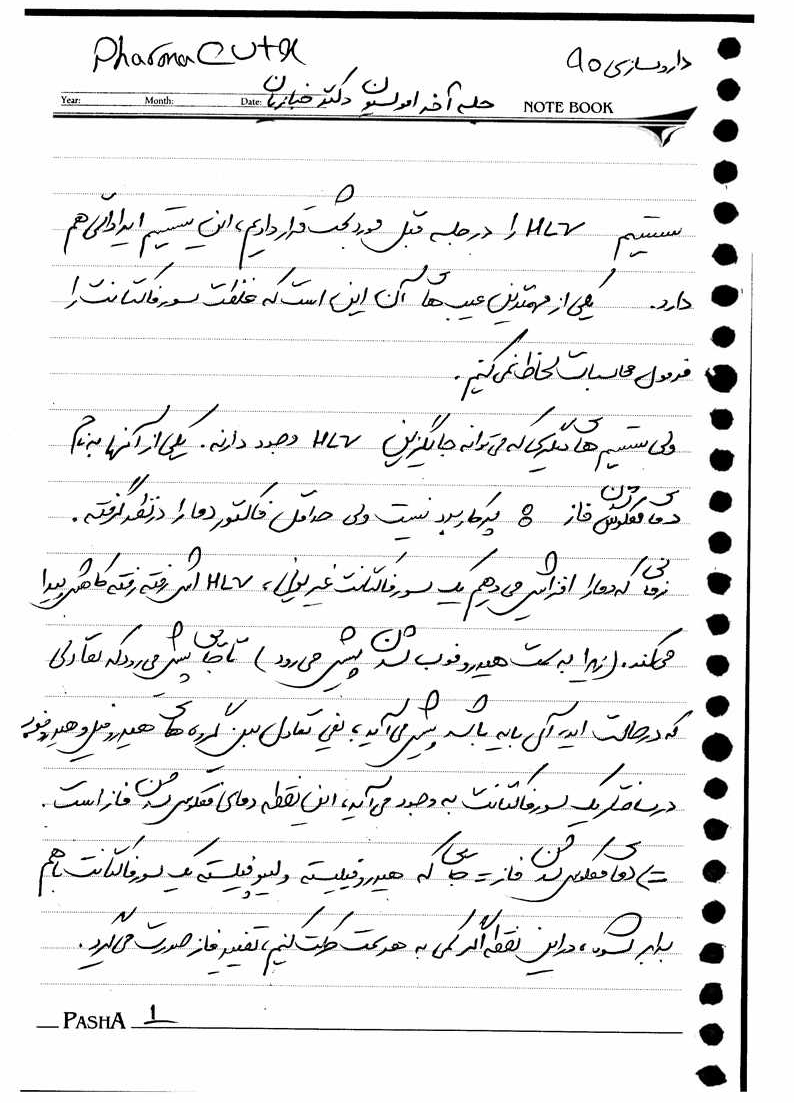 داروسازی ۹۰
PharmaCUTX
جلسه آخر امولسیون دکتر خبازیان
Year: Month: Date: NOTE BOOK
سیستم HLB را در جلسه قبل مورد بحث قرار دادیم، این سیستم ایراداتی هم
دارد. یکی از مهمترین عیب های آن این است که غلظت سورفاکتانت را
فرمول محاسبات لحاظ نمی کنیم.
ولی سیستم های دیگری که می تواند جایگزین HLB وجود دارند. یکی از آنها به نام
دمای معکوس شدن فاز : پرکاربرد نیست ولی حداقل فاکتور دما را در نظر گرفته.
زمانی که دما را افزایش می دهیم یک سورفاکتانت غیر یونی، HLB اش رفته رفته کاهش پیدا
میکند. (زیرا به سمت هیدروفوب شدن پیش می رود) تا جایی پیش می رود که تعادلی
که در حالت ایده آلی باید باشد پیش می آید، یعنی تعادل بین گروه های هیدروفیل و هیدروفوب
در ساختار یک سورفاکتانت به وجود می آید، این نقطه دمای معکوس شدن فاز است.
=> دمای معکوس شدن فاز = جایی که هیدروفیلیسته و لیپوفیلیسته یک سورفاکتانت با هم
برابر شود، در این نقطه اگر کمی به هر سمت حرکت کنیم، تغییر فاز صورت می گیرد.
PASHA 1